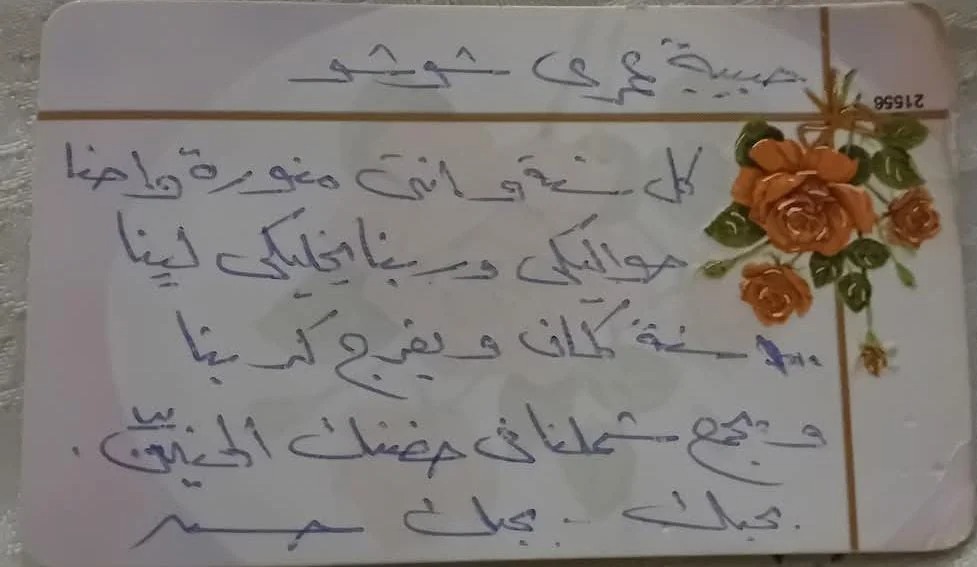 حبيبة عمرى شوشو
21556
كل سنة وانتى منورة واحنا
حواليكى وربنا يخليكى لينا
سنة كمان ويفرج كربنا
ويجمع شملنا فى حضنك الحنيّن.
بحبك - بحبك